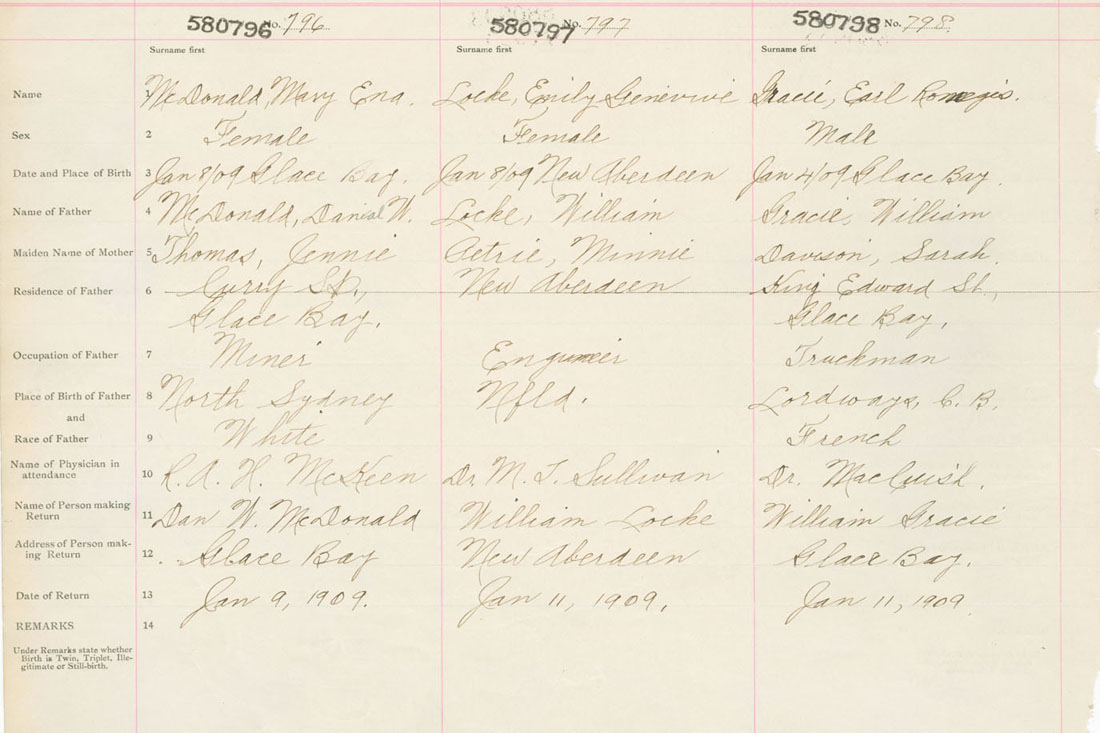 580796 No. 796 580797 No. 797 580798 No. 798
Surname first Surname first Surname first
Name 1 McDonald, Mary Ena. Locke, Emily Genevive Gracie, Earl
Sex 2 Female Female Male
Date and Place of Birth 3 Jan 8/09 Glace Bay. Jan 8/09 New Aberdeen Jan 4/09 Glace Bay.
Name of Father 4 McDonald, Danial W. Locke, William Gracie, William
Maiden Name of Mother 5 Thomas, Jennie Petrie, Minnie Davison, Sarah.
Residence of Father 6 Curry St., New Aberdeen King Edward St.,
Glace Bay. Glace Bay,
Occupation of Father 7 Miner Engineer Truckman
Place of Birth of Father 8 North Sydney Nfld. Lordways, C. B.
and
Race of Father 9 White French
Name of Physician in
attendance 10 R. A. H. McKeen Dr M. T. Sullivan Dr. MacCuish.
Name of Person making
Return 11 Dan W. McDonald William Locke William Gracie
Address of Person mak-
ing Return 12 Glace Bay New Aberdeen Glace Bay.
Date of Return 13 Jan 9, 1909. Jan 11, 1909, Jan 11, 1909
REMARKS 14
Under Remarks state whether
Birth is Twin, Triplet, Ille-
gitimate or Still-birth.